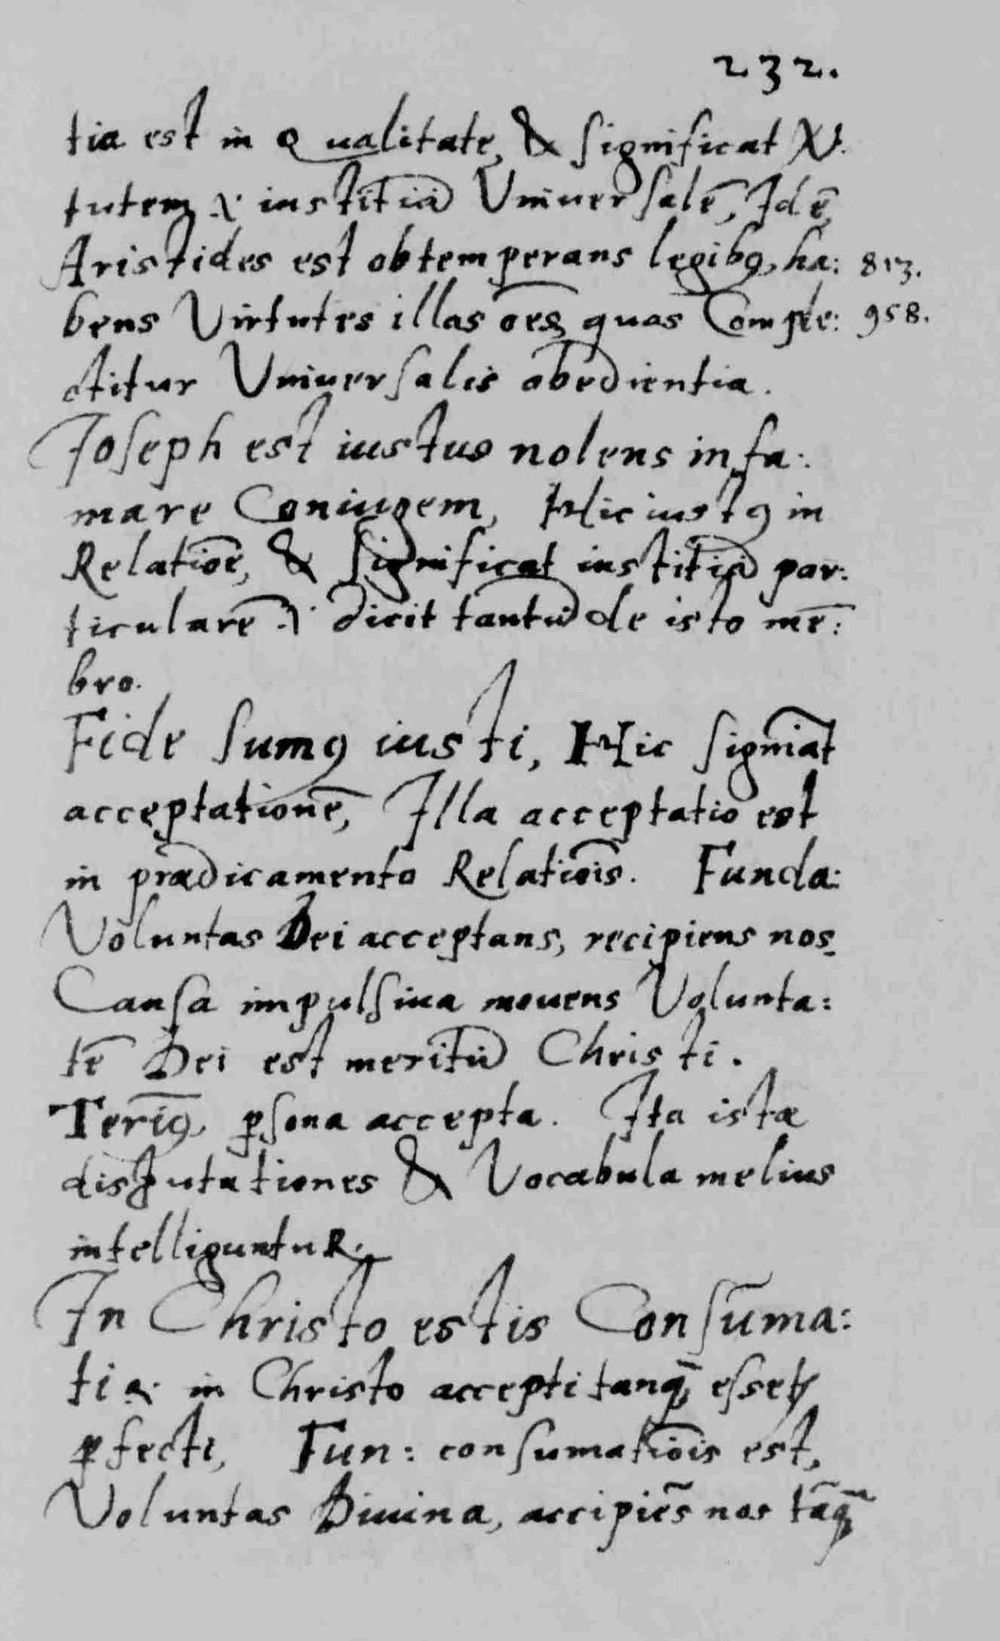 232.
tia est in Qualitate, & significat V.
tutem .i. iustitiā Vniuersalē, Idē
Aristides est obtemperans legibꝯ, ha: 813.
bens Virtutes illas oēs, quas Comple: 958.
ctitur Vniuersalis obedientia.
Joseph est iustus nolens infa:
mare Coniugem, Hic iustꝯ in
Relatiōe, & significat iustitiā par:
ticularē .i. dicit tantū de isto mē:
bro.
Fide sumꝯ iusti, Hic signiāt
acceptationē, Illa acceptatio est
in prædicamento Relatiōis. Funda:
Voluntas Dei acceptans, recipiens nos.
Causa impulsiua mouens Volunta:
tē Dei est meritū Christi.
Teriꝯ, ꝑsona accepta. Ita istæ
disputationes & Vocabula melius
intelliguntuR.
In Christo estis Consūma:
ti .i. in Christo accepti tanꝗ̄ essetꝭ
ꝑfecti, Fun: consumatiōis est,
Voluntas Diuina, accipiēs nos tāꝗ̄